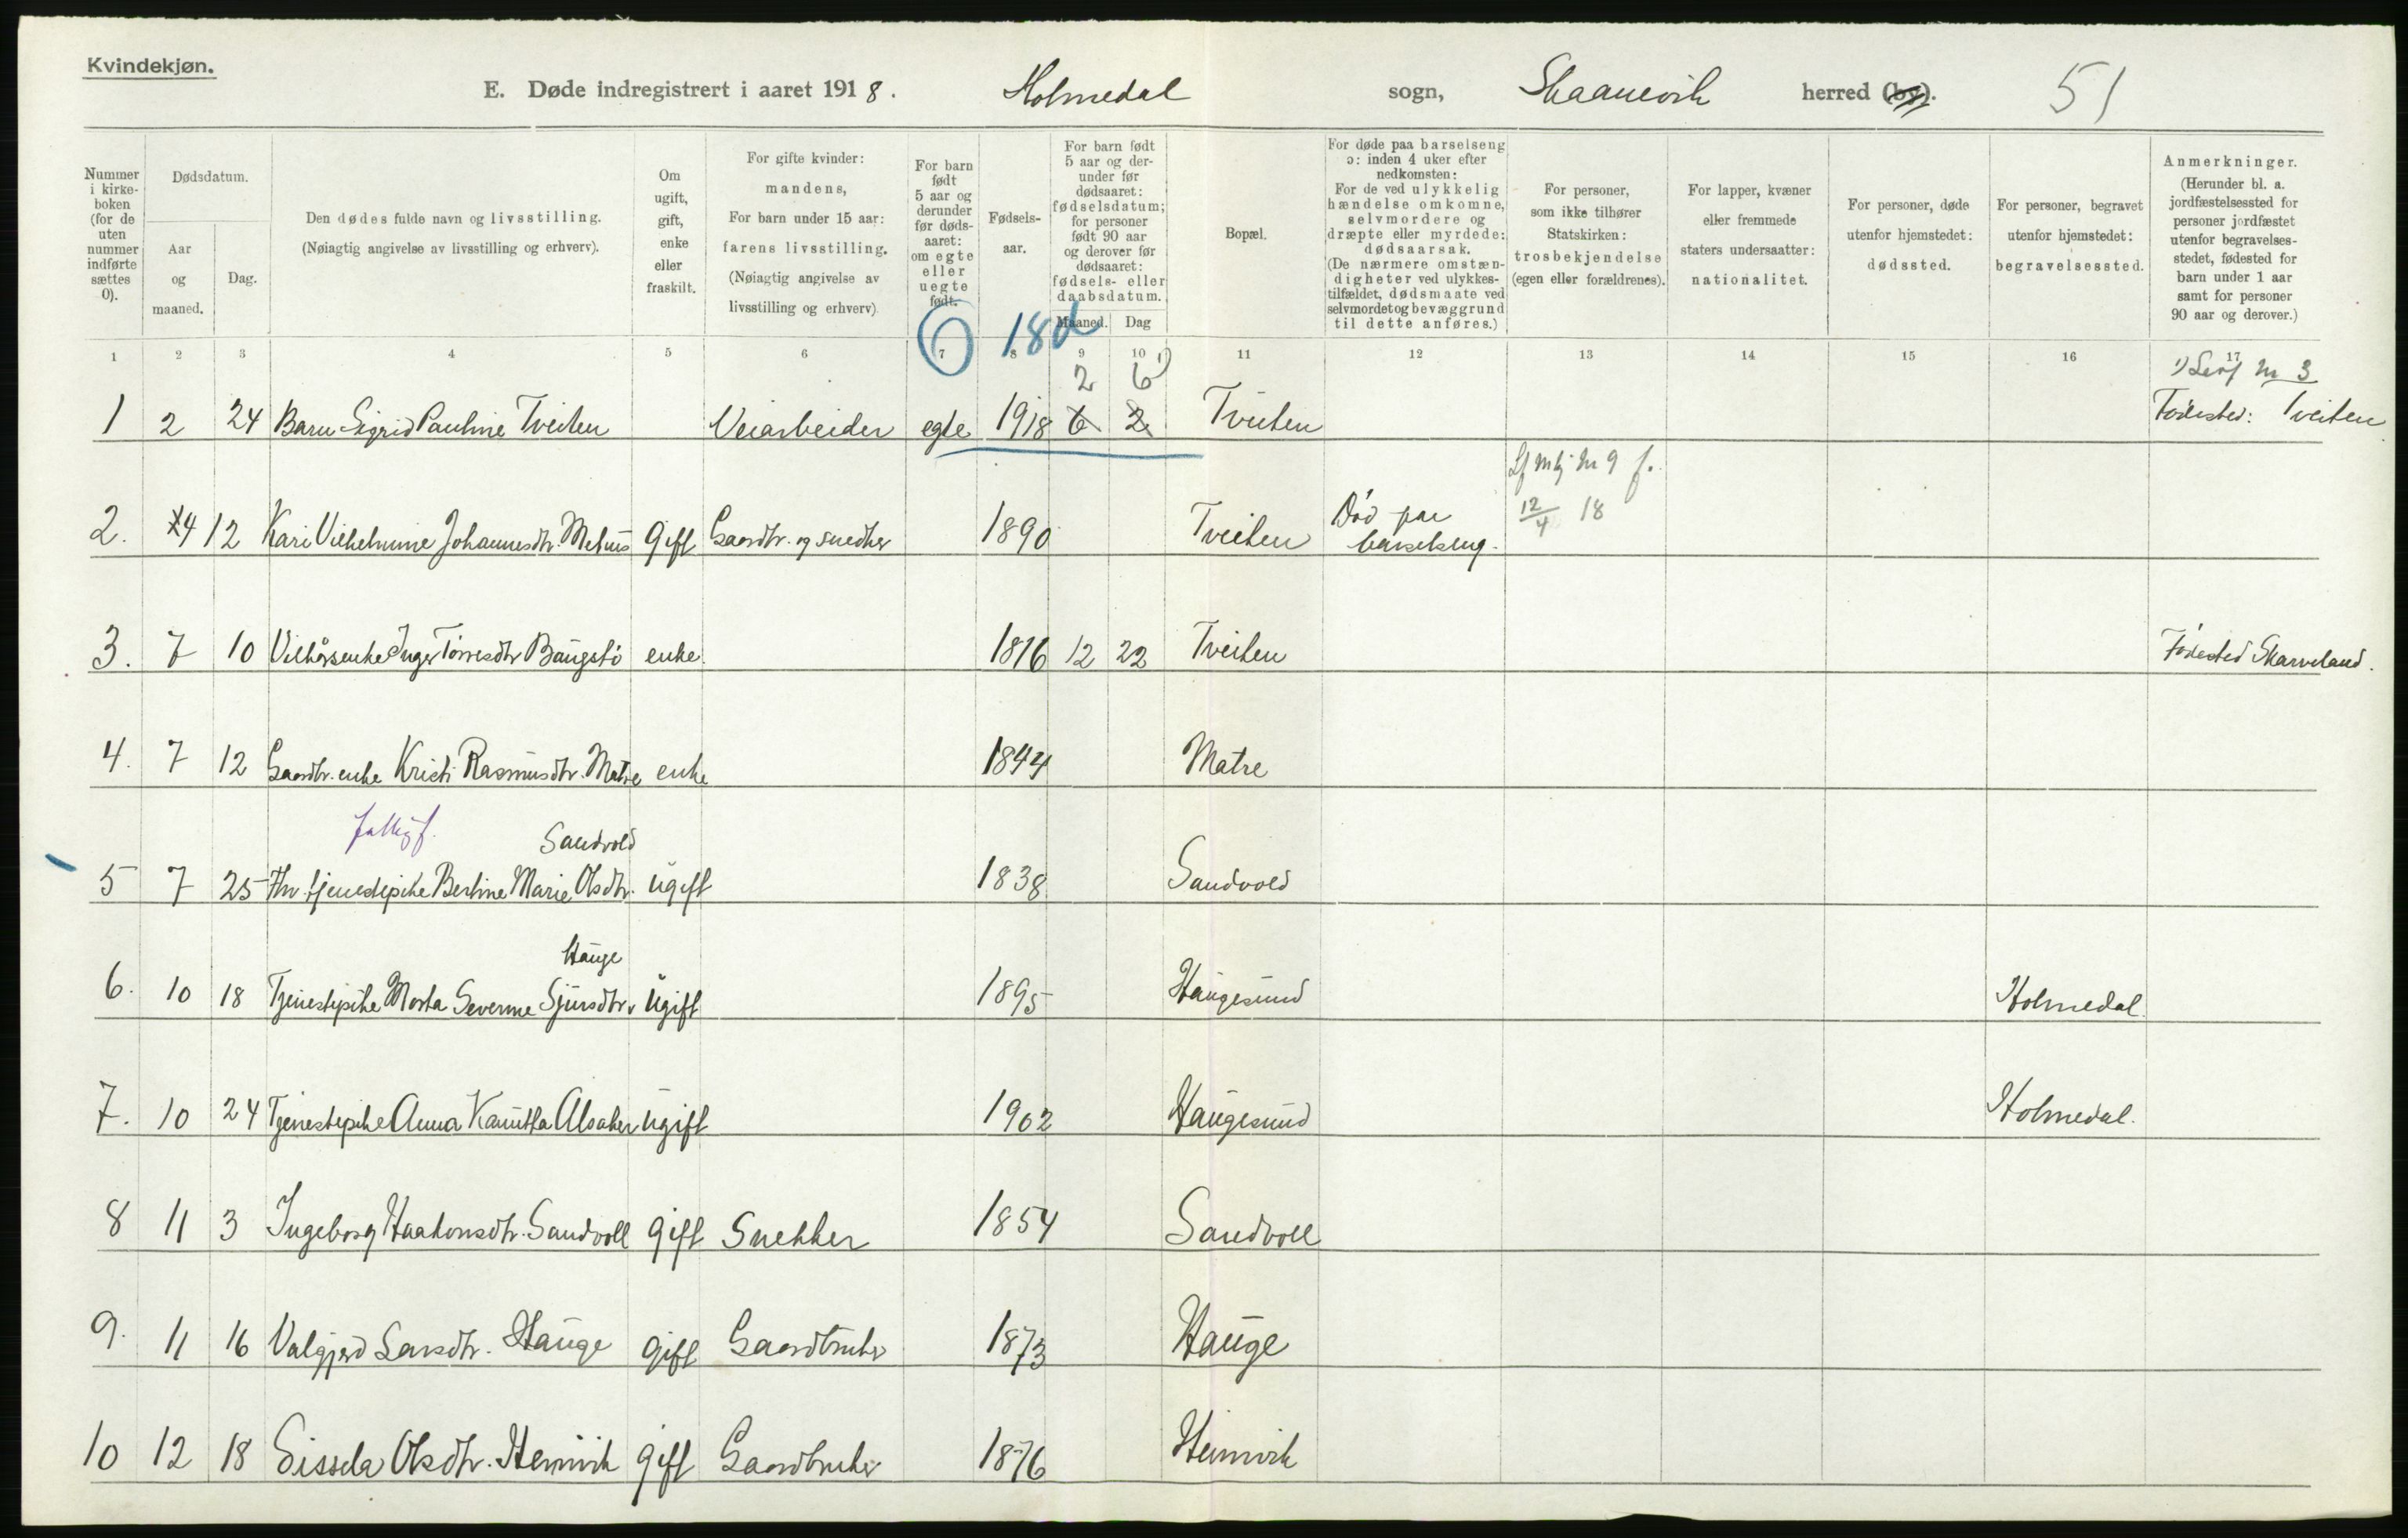 Kvindekjøn.
E. Døde indregistrert i aaret 1918. Holmedal sogn, Skaanevik herred (by). 51
Nummer i kirkeboken (for de uten nummer indførte sættes 0).
Dødsdatum.
Aar og maaned.
Dag.
Den dødes fulde navn og livsstilling.
(Nøiagtig angivelse av livsstilling og erhverv).
Om ugift, gift, enke eller fraskilt.
For gifte kvinder: mandens,
For barn under 15 aar: farens livsstilling.
(Nøiagtig angivelse av livsstilling og erhverv)
For barn født 5 aar og derunder før dødsaaret: om egte eller uegte født.
Fødselsaar.
For barn født 5 aar og derunder før dødsaaret: fødselsdatum; for personer født 90 aar og derover før dødsaaret: fødsels- eller daabsdatum.
Maaned. Dag
Bopæl.
For døde paa barselseng ɔ: inden 4 uker efter nedkomsten:
For de ved ulykkelig hændelse omkomne, selvmordere og dræpte eller myrdede: dødsaarsak.
(De nærmere omstændigheter ved ulykkestilfældet, dødsmaate ved selvmordet og bevæggrund til dette anføres.)
For personer, som ikke tilhører Statskirken: trosbekjendelse (egen eller forældrenes).
For lapper, kvæner eller fremmede staters undersaatter: nationalitet.
For personer, døde utenfor hjemstedet: dødssted.
For personer, begravet utenfor hjemstedet: begravelsessted.
Anmerkninger.
(Herunder bl. a. jordfæstelsessted for personer jordfæstet utenfor begravelsesstedet, fødested for barn under 1 aar samt for personer 90 aar og derover.)
18d
1 2 3 4 5 6 7 8 9 10 11 12 13 14 15 16 17
2 6 1)
1 2 24 Barn Sigrid Pauline Tveiten Veiarbeider egte 1918 6 2 Tveiten Fødested: Tveiten
12/4 18
2. 4 12 Kari Vilhelmine Johannesdtr. Gift Gaardbr. og snedker 1890 Tveiten Død paa barselseng.
3. 7 10 Inger Tørresdtr enke. 1816 12 22 Tveiten Fødested Skarveland.
4. 7 12 Gaardbr. enke Kristi Rasmusdtr. Matre enke 1844 Matre
Sandvold
5 7 25 Fhv. tjenestepike Bertine Marie Olsdtr. ugift 1838 Sandvold
Hauge
6. 10 18 Tjenestepike Marta Severine Sjursdtr. ugift 1895 Haugesund Holmedal.
7. 10 24 Tjenestepike Anna Kamilla Alsaker ugift 1902 Haugesund Holmedal.
8 11 3 Ingeborg Haakonsdtr. Sandvoll gift Snekker 1854 Sandvoll
9. 11 16 Valgjerd Larsdtr. Hauge gift Gaardbruker 1873 Hauge
10 12 18 Sissela Olsdtr. Heimvik gift Gaardbruker 1876 Heimvik